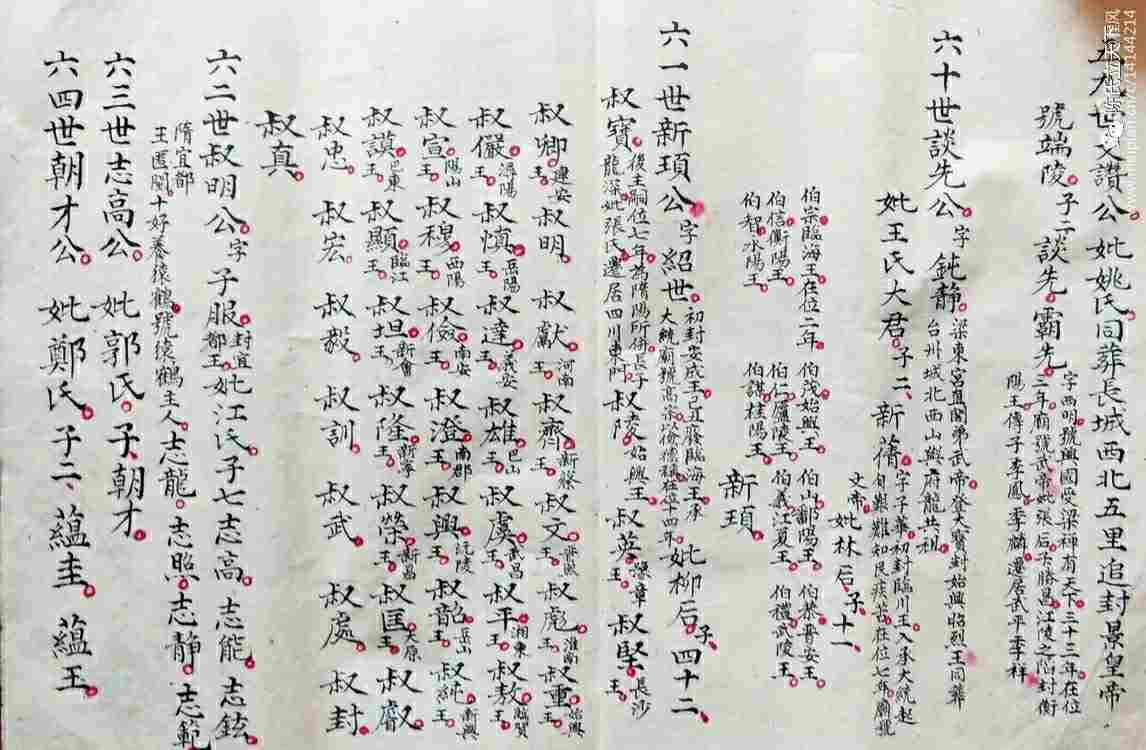 五九世文讃公。妣姚氏同葬長城西北五里追封景皇帝
號端陵。子二、談先。霸先。字西明。號興國。受梁禪有天下。三十三年。在位
三年。廟號武帝。妣張后。子勝昌。江陵之陷封衡
陽王。傳子季鳳。季麟。遷居武平季祥
六十世談先公。字鈍靜。梁東宮直閣弟武帝登大寶封始興昭烈王同葬
台州城北西山與府龍共利
妣王氏大君。子二、新蒨。字子華。初封臨川王入承大統起
自艱難知民疾苦在位七年廟號
文帝。妣林后。子十一
伯宗臨海王在位二年 伯茂始興王。伯山鄱陽王。伯恭晋安王。
伯信衡陽王。伯仁廬陵王。伯義江夏王。伯禮武陵王。
伯智永陽王。伯謀桂陽王。
新頊。
六一世新頊公。字紹世。初封安成王。己丑廢臨海王承
大統廟號高宗。在位十四年。妣柳后。子四十二、
叔寶。後主嗣位七年。為隋所併。長子
龍深。妣張氏。遷居四川東門。叔陵。始興王。叔英。豫章王。叔堅。長沙王。
叔卿。建安王。叔明。叔獻。河南王。叔齊。新蔡王。叔文。晋熙王。叔彪。淮南王。叔重。始興王。
叔儼。潯陽王。叔慎。岳陽王。叔達。義安王。叔雄。巴山王。叔虞。武昌王。叔平。湘東王。叔敖。臨賀王。
叔宣。陽山王。叔穆。西陽王。叔儉。南安王。叔澄。南郡王。叔興。沅陵王。叔韶。岳山王。叔純。新興王。
叔謨。巴東王。叔顯。臨江王。叔坦。新會王。叔隆。新寧王。叔榮。新昌王。叔匡。太原王。叔叡
叔忠。叔宏 叔毅 叔訓 叔武 叔處 叔封
叔真
六二世叔明公。字子服。封宜都王。妣江氏。子七志高。志能。志鉉
隋宜都
王匿閩。十好養猿鶴。號猿鶴主人。志龍。志照。志靜。志範
六三世志高公。妣郭氏。子、朝才
六四世朝才公。妣鄭氏。子二、蘊圭。蘊玉。